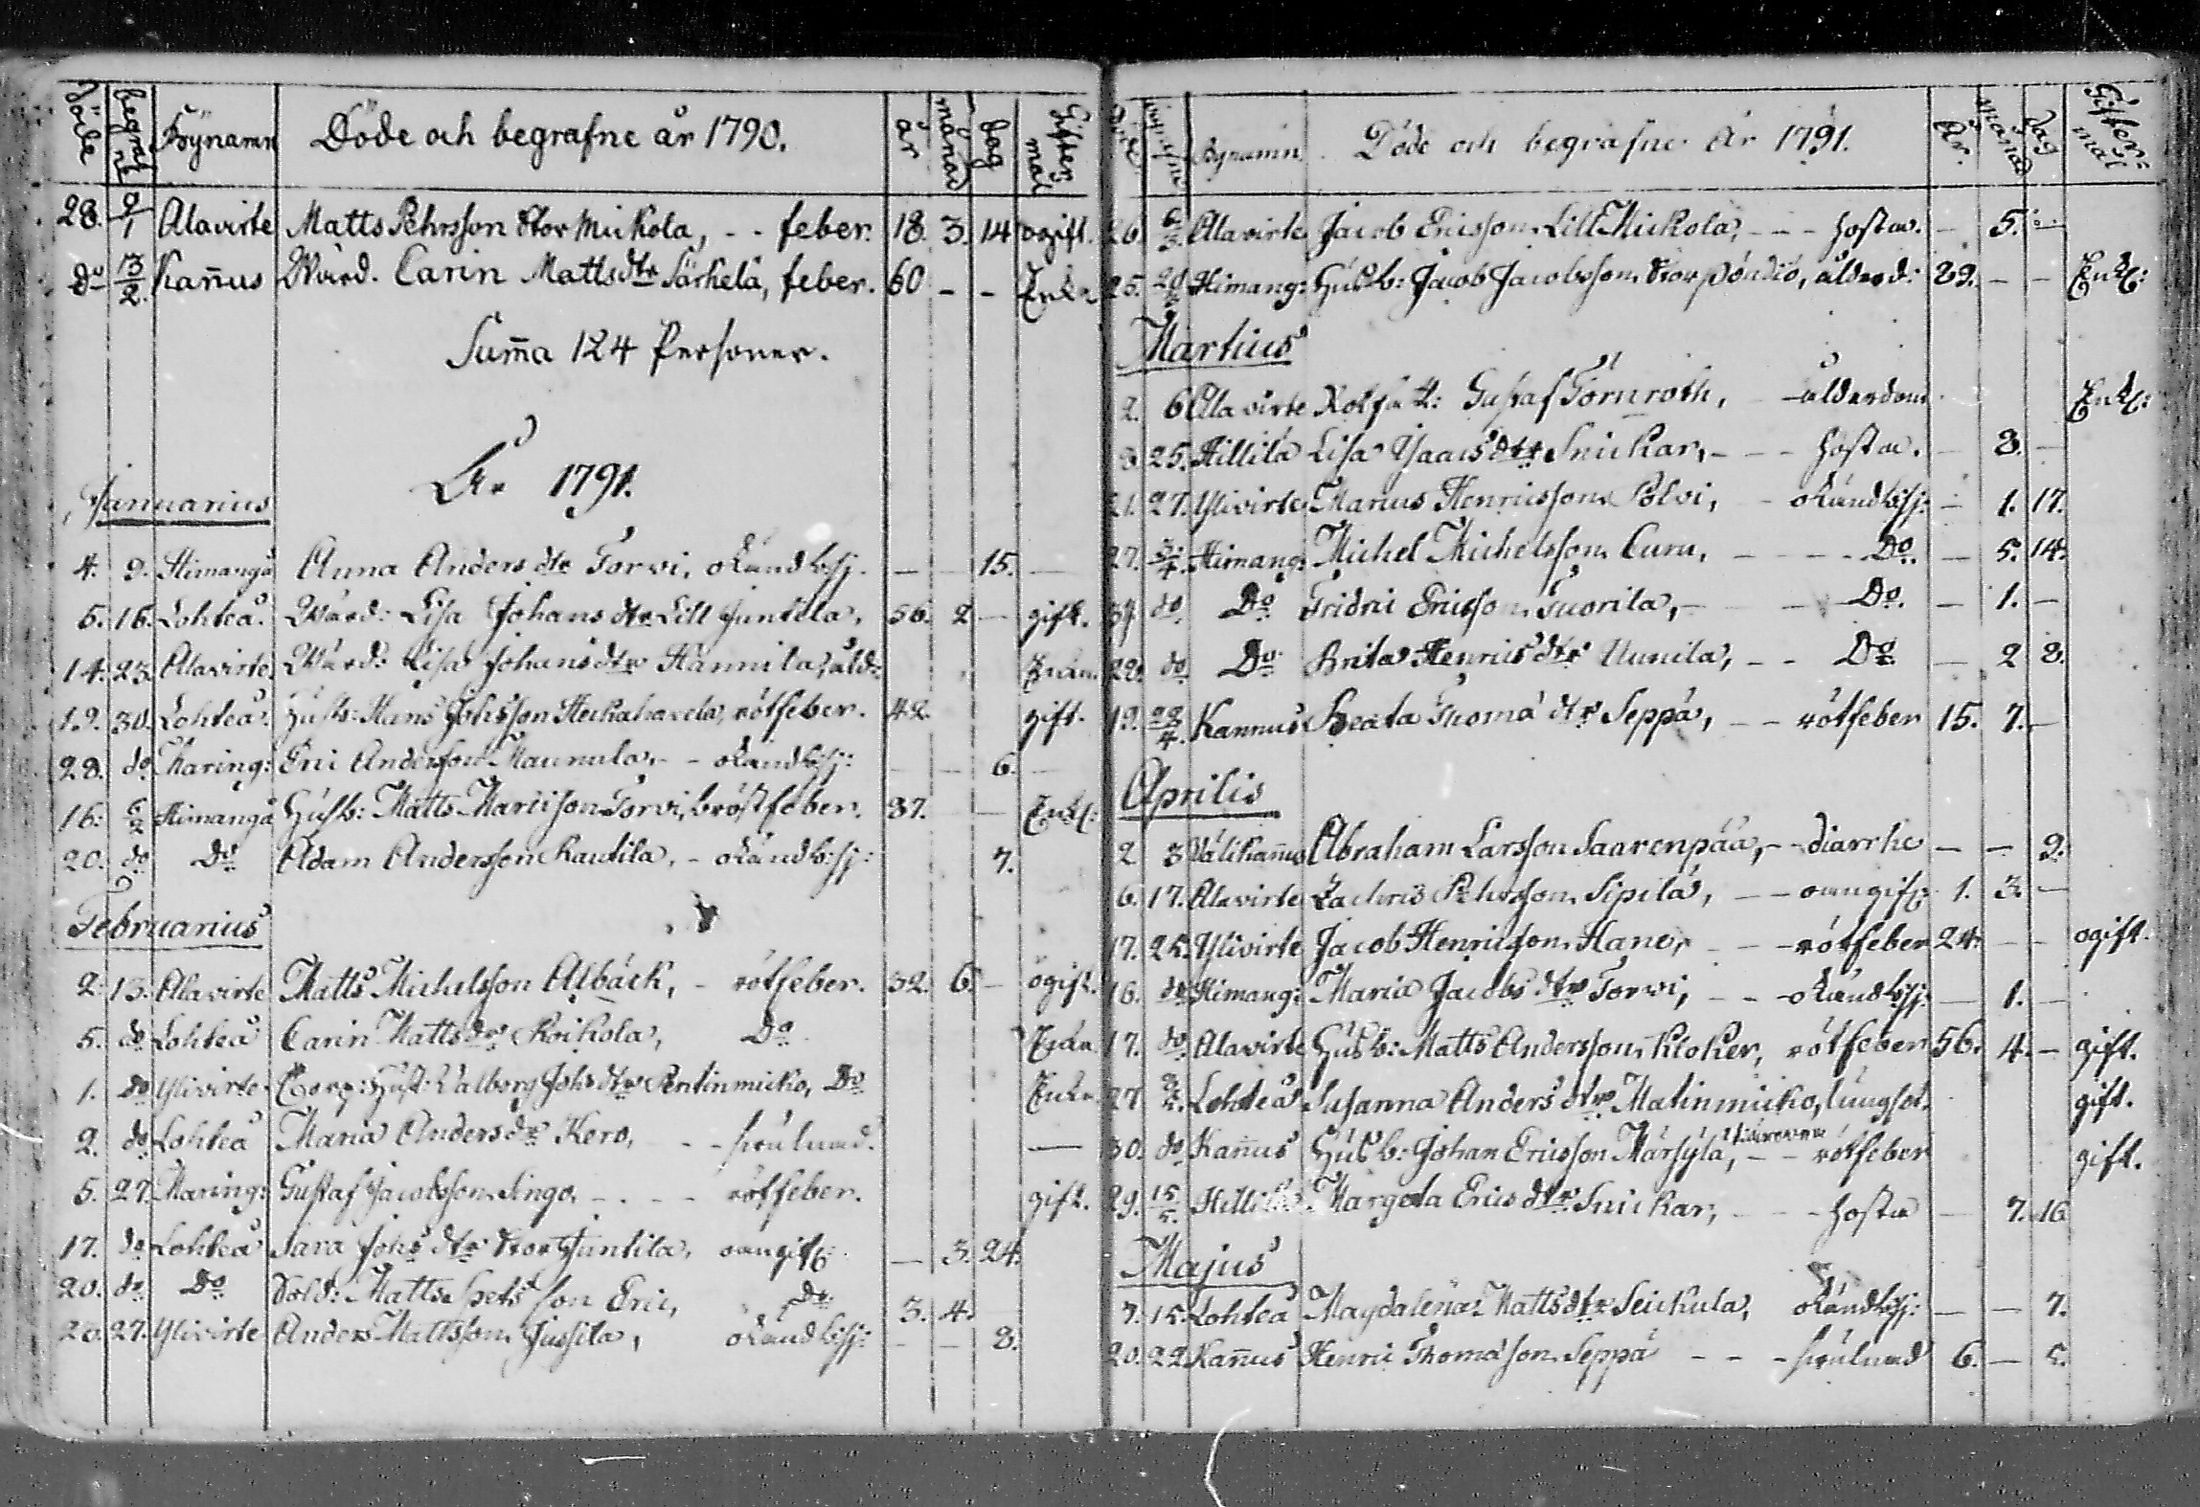 döde begrafne Bÿnamn Döde och begrafne år 1790. år månad dag Giftermål
28. 9/1 Alavirte Matts Pehrsson Stor Mickola, - - feber. 18. 3. 14 ogift.
do 13/2. Kan̄us Wärd. Carin Mattsdtr Särkelä, feber. 60 - - Enka
Sum̄a 124 Personer.
År 1791.
Januarius
4. 9. Himangå Anna Andersdtr Torvi, okänd bsj. — 15. —
5. 16. Lohteå. Wärd: Lisa Johansdtr Lill Juntila, 56. 2 — gift.
14. 23. Alavirte Wärd: Lisa Johansdtr Hannila, åld: Enka.
19. 30. Lohteå. Husb: Hans Johsson rötfeber. 42. gift.
28. do Maring: Eric Andersson Maunula, - - okänd bsj: — — 6. —
16. 6/2 Himangå Husb: Matts Torvi, bröstfeber. 37. — Enkl:
20. do Do Adam Andersson Rautila, - okänd bsj: 7.
Februarius
2. 13. Alavirte Matts Michelsson Albäck, - rötfeber. 32. 6. — ogift.
5. do Lohteå Carin Mattsdtr Roikola, Do Enka
1. do Ylivirte Corp: Hust: Valborg Johsdtr Pentinmicko, Do Enka
2. do Lohteå Maria Andersdtr Kero, - - —
5. 27. Maring: Gustaf Jacobsson Singo, - - - rötfeber. gift.
17. do Lohteå Sara Johsdtr Stor Juntila, oangifl: — 3. 24.
20. do Do Sold: Matts Spets son Eric, do 3. 4.
20. 27. Ylivirte Anders Mattsson Jussila, okänd bsj: — — 8.
Döde begrafne Bynamn Döde och begrafne År 1791. År. Månad Dag Giftermål
26. 6/3. Alavirte Jacob Ericsson Lill Mickola, - - - hosta. — 5. —
25. 20/3 Himang: Husb: Jacob Jacobsson Stor Pöndiö, ålderd: 89. — — Enkl:
Martius
2. 6 Alavirte Gustaf Törnroth, — ålderdom Enkl:
8 25. Hillilä Lisa Isaacsdtr Snickar, - - - hosta. — 8. —
21. 27. Ylivirte Marcus Henricsson Polvi, - okänd bsj: — 1. 17.
27. Himang: Michel Michelsson Curu, - - - - Do. — 5. 14.
do Do Fridric Ericsson Tuorila, - - Do. — 1. —
22. do Do Brita Henricsdtr Uunila, - - Do — 2 8.
19. 22/4. Kannus Beata Thomædtr Seppä, - - rötfeber 15. 7. —
Aprilis
2 3 Välikan̄us Abraham Larsson Saarenpää, - - diarrhe — — 9.
6. 17. Alavirte Zachris Pehrsson Sipilä, - - oangifl: 1. 3. —
17. 25. Ylivirte Jacob Henricsson Hane, - - rötfeber 24. — — ogift.
16. do Himang: Maria Jacobsdtr Torvi, - - okänd bsj: — 1. —
17. do Alavirte Husb: Matts Andersson Kloker, rötfeber 56. 4. — gift.
27 Lohteå Susanna Andersdtr Matinmicko, lungsot. gift.
30. do Kan̄us Husb: Johan Ericsson Märsylä, - - rötfeber gift.
29. 15/5. Hillilä Margeta Ericsdtr Snickar, - - - hosta — 7. 16
Majus
7. 15. Lohteå Magdalena Mattsdtr Seickula, okänd bsj: — — 7.
20. 22 Kan̄us Henric Thomæson Seppä - - - 6. — 5.